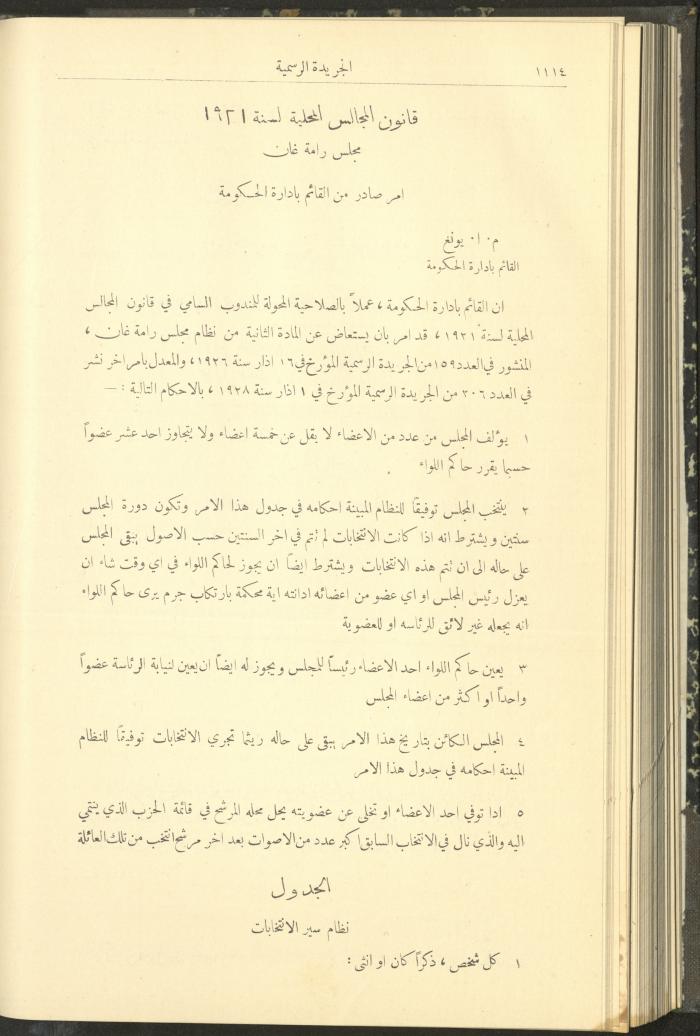 ١١١٤
الجريدة الرسمية
قانون المجالس المحلية لسنة ١٩٢١
مجلس رامة غان
امر صادر من القائم بادارة الحكومة
م٠ ا٠ يونغ
القائم بادارة الحكومة
ان القائم بادارة الحكومة ، عملاً بالصلاحية المخولة للمندوب السامي في قانون المجالس
المحلية لسنة ١٩٢١ ، قد امر بان يستعاض عن المادة الثانية من نظام مجلس رامة غان ،
المنشور في العدد ١٥٩ من الجريدة الرسمية المؤرخ في ١٦ اذار سنة ١٩٢٦ ، والمعدل بامر اخر نشر
في العدد ٢٠٦ من الجريدة الرسمية المؤرخ في ١ اذار سنة ١٩٢٨ ، بالاحكام التالية : —
١ يؤلف المجلس من عدد من الاعضاء لا يقل عن خمسة اعضاء ولا يتجاوز احد عشر عضواً
حسبما يقرر حاكم اللواء
٢ ينتخب المجلس توفيقاً للنظام المبينة احكامه في جدول هذا الامر وتكون دورة المجلس
سنتين ويشترط انه اذا كانت الانتخابات لم تتم في اخر السنتين حسب الاصول يبقى المجلس
على حاله الى ان تتم هذه الانتخابات ويشترط ايضاً ان يجوز لحاكم اللواء في اي وقت شاء ان
يعزل رئيس المجلس او اي عضو من اعضائه ادانته اية محكمة بارتكاب جرم يرى حاكم اللواء
انه يجعله غير لائق للرئاسه او للعضوية
٣ يعين حاكم اللواء احد الاعضاء رئيساً للمجلس ويجوز له ايضاً ان يعين لنيابة الرئاسة عضواً
واحداً او اكثر من اعضاء المجلس
٤ المجلس الكائن بتاريخ هذا الامر يبقى على حاله ريثما تجري الانتخابات توفيقاً للنظام
المبينة احكامه في جدول هذا الامر
٥ اذا توفي احد الاعضاء او تخلى عن عضويته يحل محله المرشح في قائمة الحزب الذي ينتمي
اليه والذي نال في الانتخاب السابق اكبر عدد من الاصوات بعد اخر مرشح انتخب من تلك العائلة
الجدول
نظام سير الانتخابات
١ كل شخص ، ذكراً كان او انثى :